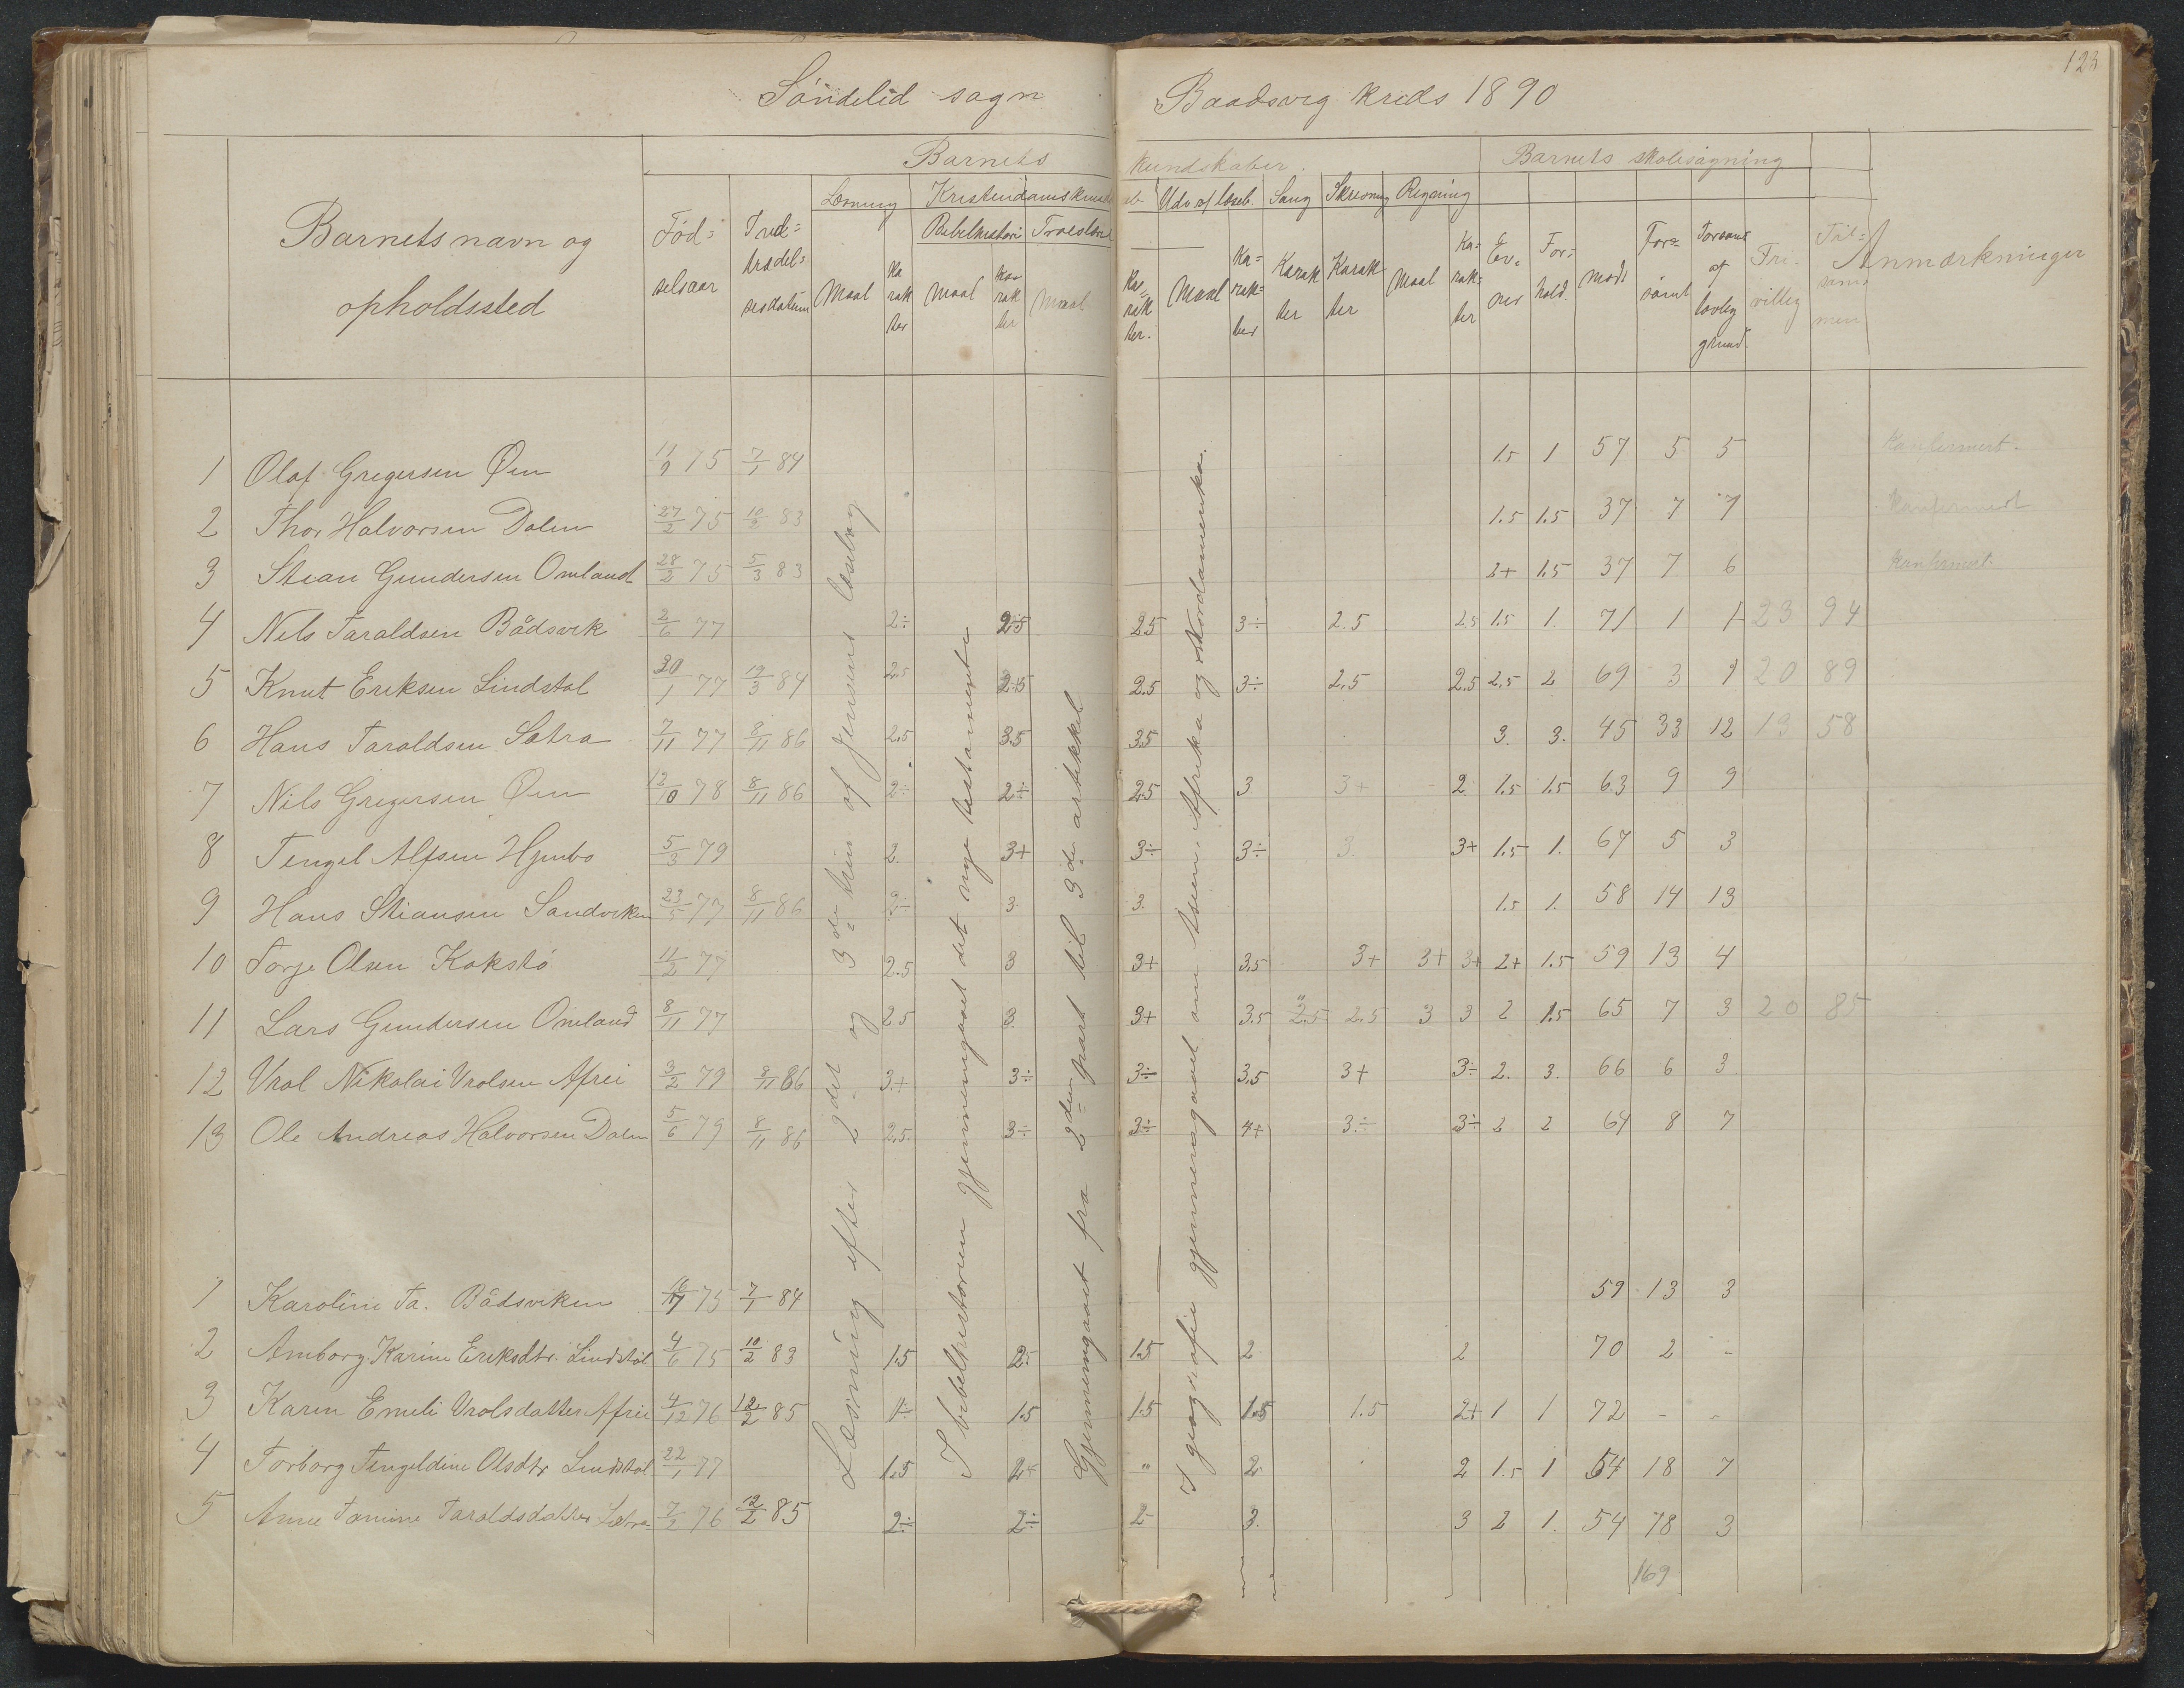 123
Söndeled sogn Baadsvig kreds 1890
Barnets kundskaber. Barnets skolesøgning
Læsning Kristendomskundskab Udv. af læseb. Sang Skrivning Regning
Barnets navn og opholdssted
Fød= selsaar
Ind= trædel= sesdatum
Bibelhistori Troeslære
Maal Ka rak ter Maal Ka rak ter Maal Ka= rak ter. Maal Ka= rak= ter Karak ter Karak ter Maal Ka= rak= ter
Ev= ner For= hold. mødt For= sømt Forsømt af lovlig grund. Fri= villig Til= sam= men Anmærkninger
1 Olaf Gregersen Øen 11/9 75 7/1 84 1.5 1 57 5 5 Konfermert.
2 Thor Halvorsen Dalen 27/2 75 10/2 83 1.5 1.5 37 7 7 Konfermert
3 Stian Gundersen Omland 28/2 75 5/3 83 2+ 1.5 37 7 6 konfermert.
4 Nils Taraldsen Bådsvik 2/6 77 2÷ 2.5 2.5 3÷ 2.5 2.5 1.5 1. 71 1 1 23 94
5 Knut Eriksen Lindstøl 30/1 77 19/3 84 2.5 2.5 2.5 3÷ 2.5 2.5 2.5 2 69 3 1 20 89
6 Hans Taraldsen Satra 7/11 77 8/11 86 2.5 3.5 3.5 3. 3. 45 33 12 13 58
7 Nils Gregersen Øen 12/10 78 8/11 86 2÷ 2÷ 2.5 3 3+ 2. 1.5 1.5 63 9 9
8 Tengel Alfsen Hjembo 5/3 79 2. 3+ 3÷ 3÷ 3 3+ 1.5 1. 67 5 3
9 Hans Stiansen Sandviken 23/5 77 8/11 86 3 3. 1.5 1. 58 14 13
10 Torje Olsen Kokstö 11/2 77 2.5 3 3+ 3.5 3+ 3+ 3+ 2+ 1.5 59 13 4
11 Lars Gundersen Omland 8/11 77 2.5 3 3+ 3.5 2.5 2.5 3 3 2 1.5 65 7 3 20 85
12 Vrol Nikolai Vrolsen Afrei 3/2 79 8/11 86 3+ 3÷ 3÷ 3.5 3+ 3÷ 2. 3. 66 6 3
13 Ole Andreas Halvorsen Dalen 5/6 79 8/11 86 2.5 3÷ 3÷ 4+ 3÷ 3÷ 2 2 64 8 7
1 Karoline Ta. Bådsviken 75 7/1 84 59 13 3
2 Amborg Karine Eriksdtr. Lindstöl 4/6 75 10/2 83 1.5 2.5 1.5 2 2 70 2 -
3 Karen Emeli Vrolsdatter Afrei 4/12 76 12/2 85 1÷ 1.5 1.5 1.5 1.5 2+ 1 1 72 - -
4 Torborg Tengeldine Olsdtr Lindstöl 22/1 77 1.5 2+ " 2 2 1.5 1 54 18 7
5 Anne Tomine Taraldsdatter Satra 7/2 76 12/2 85 2÷ 2÷ 2 3. 3 2 1. 54 18 3
169
Læsning efter 2det og 3die trin af Jensens læsebog
I bibelhistorien gjennemgaaet det nye testamente
Gjennemgaaet fra 2den part til 3die artikkel
I geografie gjennemgaaet om Asien, Afrika og Nordamerika.